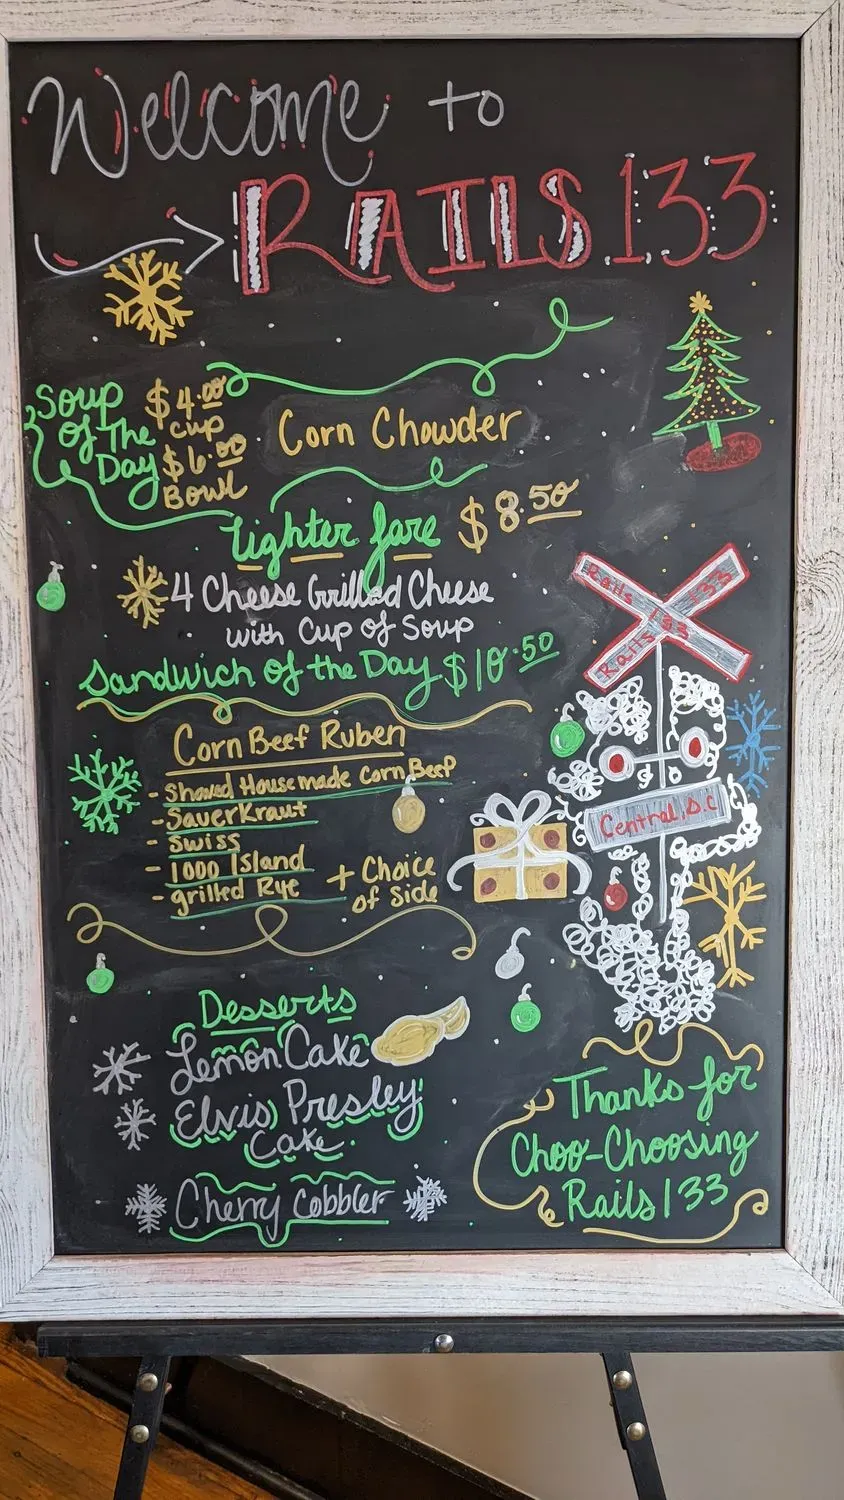 Welcome to
RAILS 133
Soup of The Day
$4.00 cup
$6.00 Bowl
Corn Chowder
Lighter fare $8.50
4 Cheese Grilled Cheese
with Cup of Soup
Sandwich of the Day $10.50
Corn Beef Ruben
- Shaved Housemade Corn Beef
- SauerKraut
- Swiss
- 1000 Island
- grilled Rye
+ Choice
of Side
Rails 133
Rails 133
Central, S.C
Desserts
Lemon Cake
Elvis Presley
Cake
Cherry Cobbler
Thanks for
Choo-Choosing
Rails 133